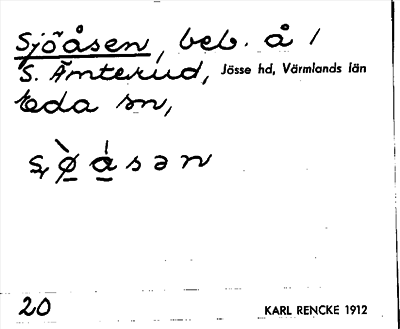 Sjöåsen, beb. å /
S. Ämterud, Jösse hd, Värmlands län
Eda sn,
20 KARL RENCKE 1912